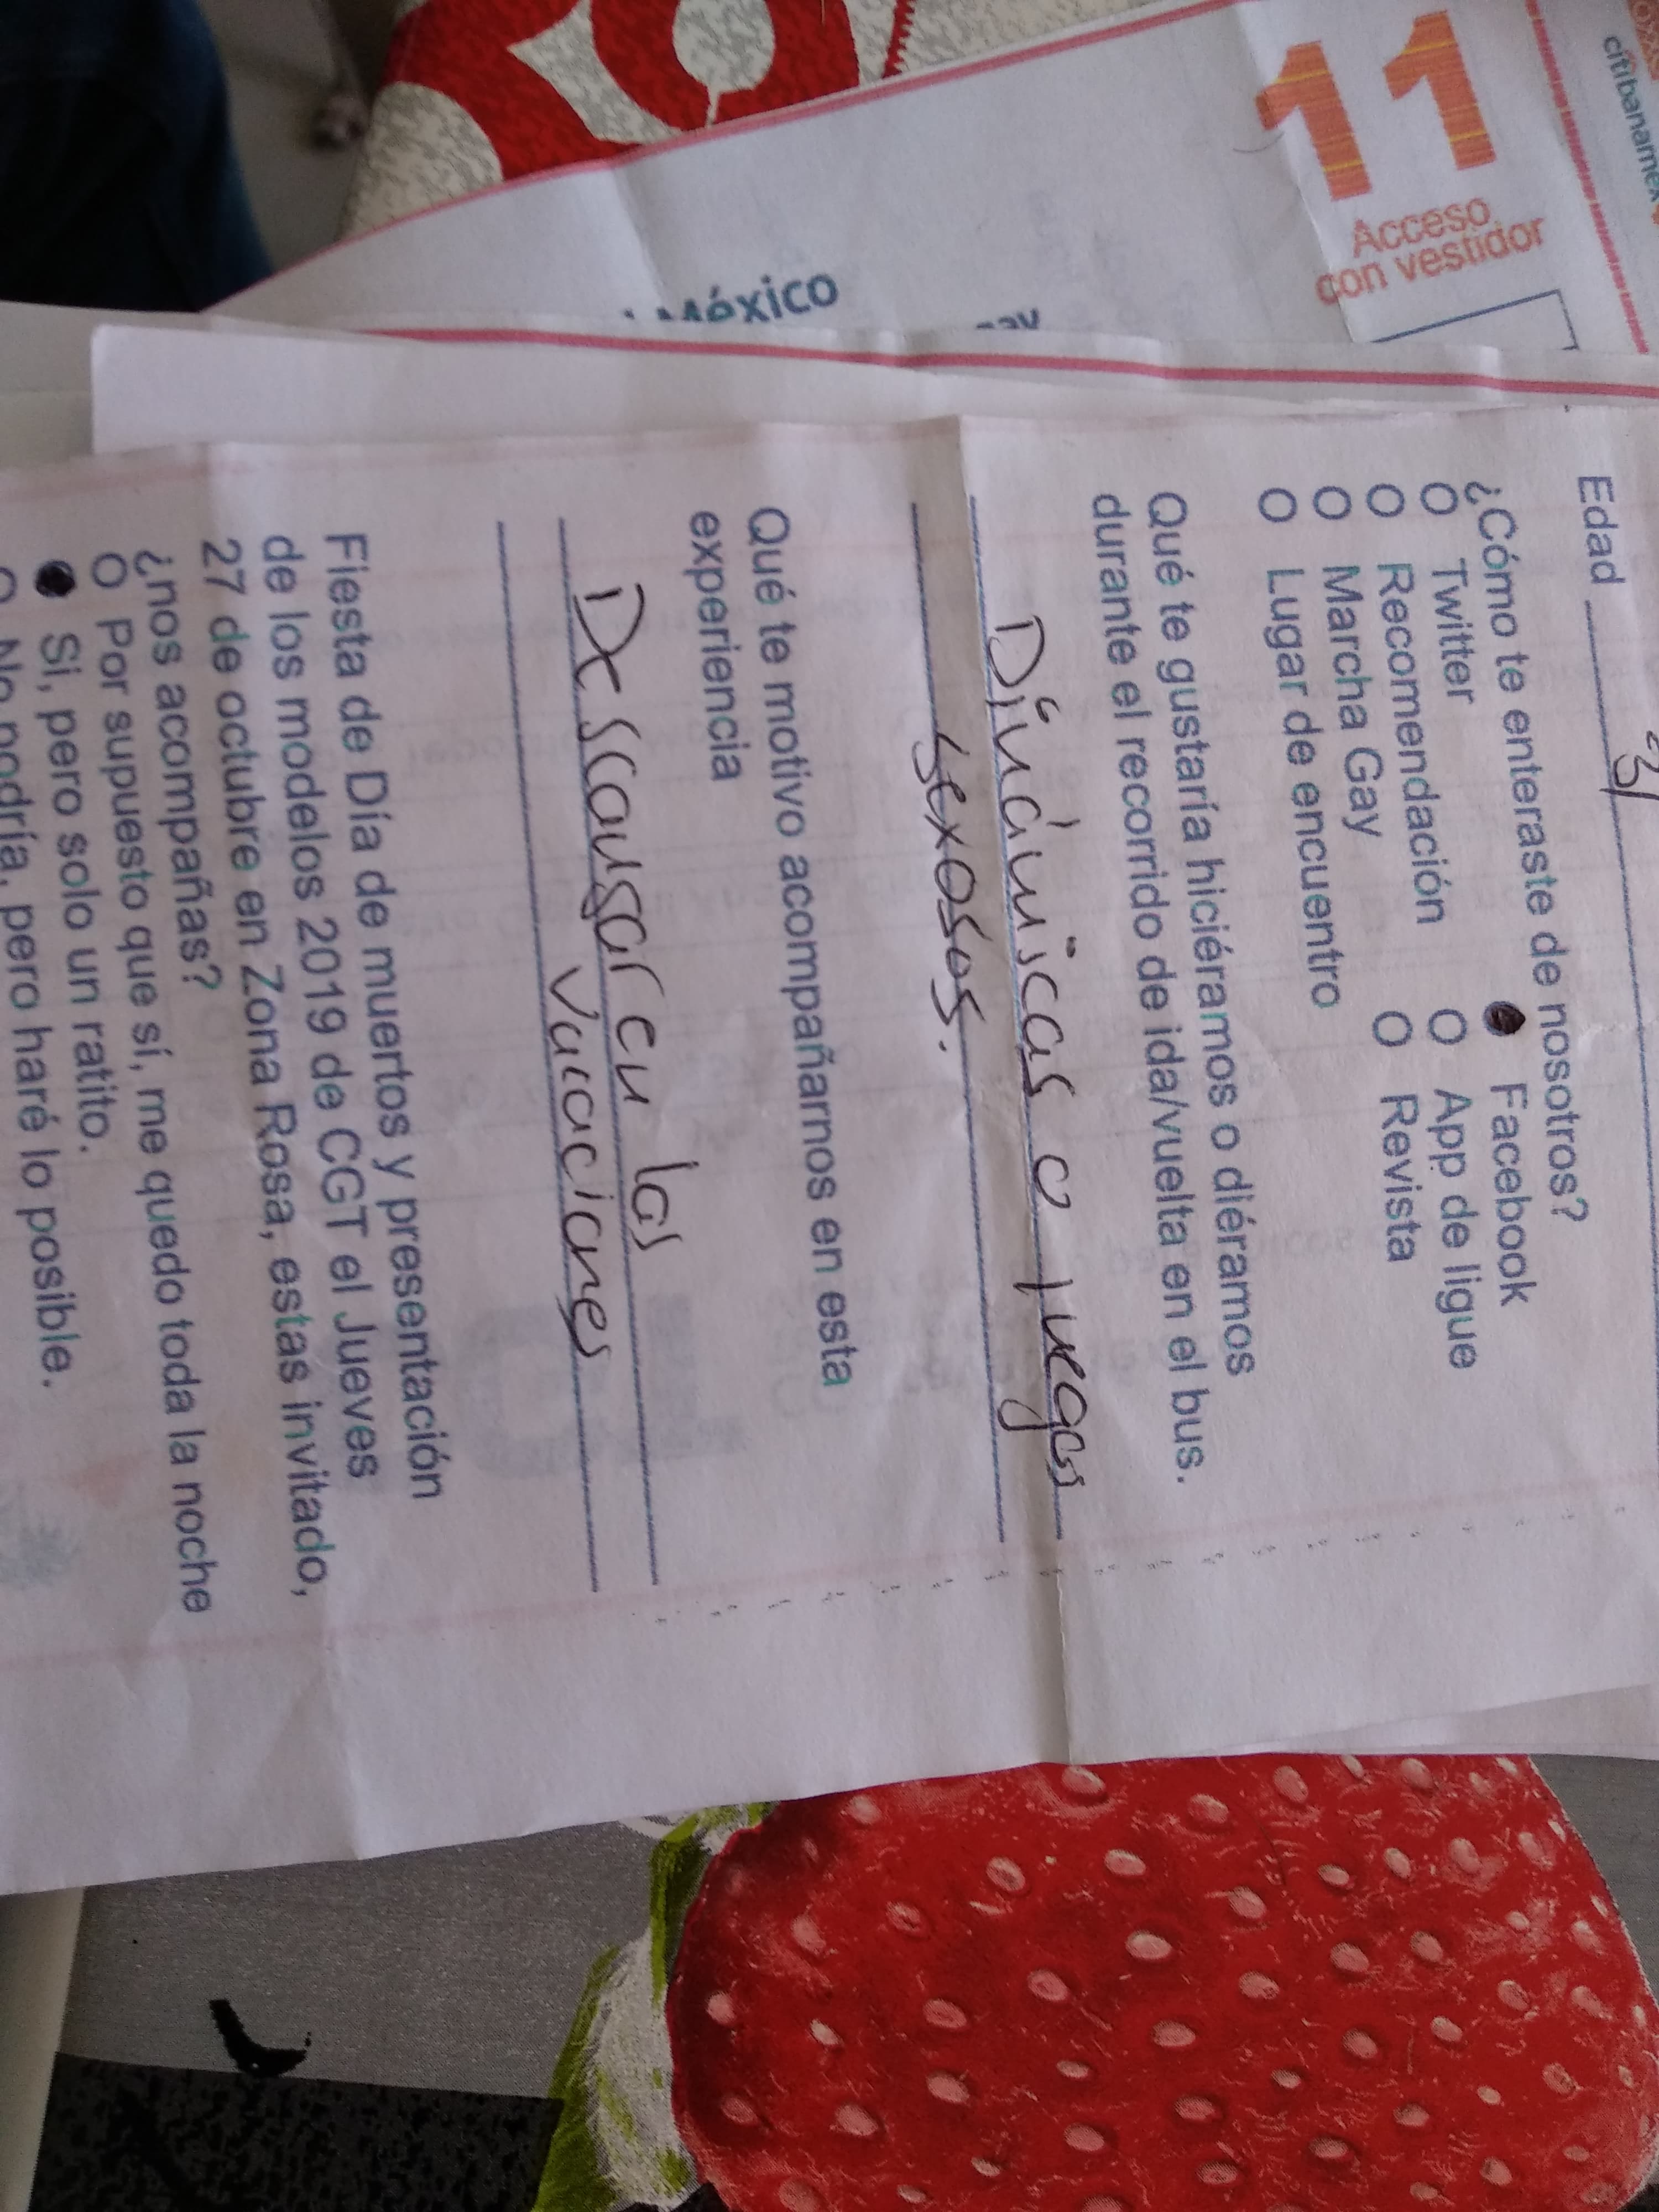 citibanamex
11
Acceso
con vestidor
México
Edad 31
¿Cómo te enteraste de nosotros?
O Twitter ● Facebook
O Recomendación O App de ligue
O Marcha Gay O Revista
O Lugar de encuentro
Qué te gustaría hiciéramos o diéramos
durante el recorrido de ida/vuelta en el bus.
Dinámicas o juegos
sexosos.
Qué te motivo acompañarnos en esta
experiencia
Descansar en las
Vacaciones
Fiesta de Día de muertos y presentación
de los modelos 2019 de CGT el Jueves
27 de octubre en Zona Rosa, estas invitado,
¿nos acompañas?
O Por supuesto que sí, me quedo toda la noche
● Si, pero solo un ratito.
O No podría, pero haré lo posible.